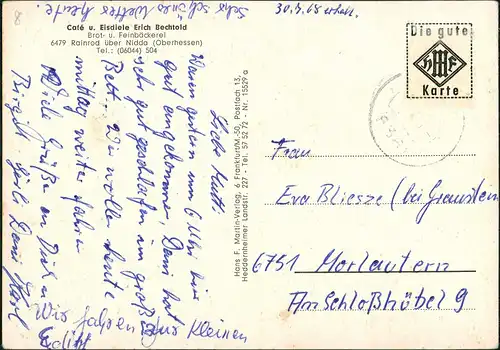 Café u. Eisdiele Erich Bechtold
Brot- u. Feinbäckerei
6479 Rainrod über Nidda (Oberhessen)
Tel.: (06044) 504
30.4.68 erhalt.
Die gute
HMF
Karte
Hans F. Martin-Verlag, 6 Frankfurt/M-50, Postfach 13,
Heddernheimer Landstr. 227 - Tel. 57 52 72 - Nr. 15529 a
Liebe Mutti
Waren gestern um 6 Uhr hier
gut angekommen, Dani hat
sehr gut geschlafen im groß.
Bett. Wir wollen heute
mittag weiter fahren
Viele Grüße an Dich u.
Birgit
Dani
sehr schönes Wetter heute.
Wir fahren zur kleinen
Frau
Eva Bliesze (bei Grawsten
6751 Morlautern
Am Schloßhübel 9
8